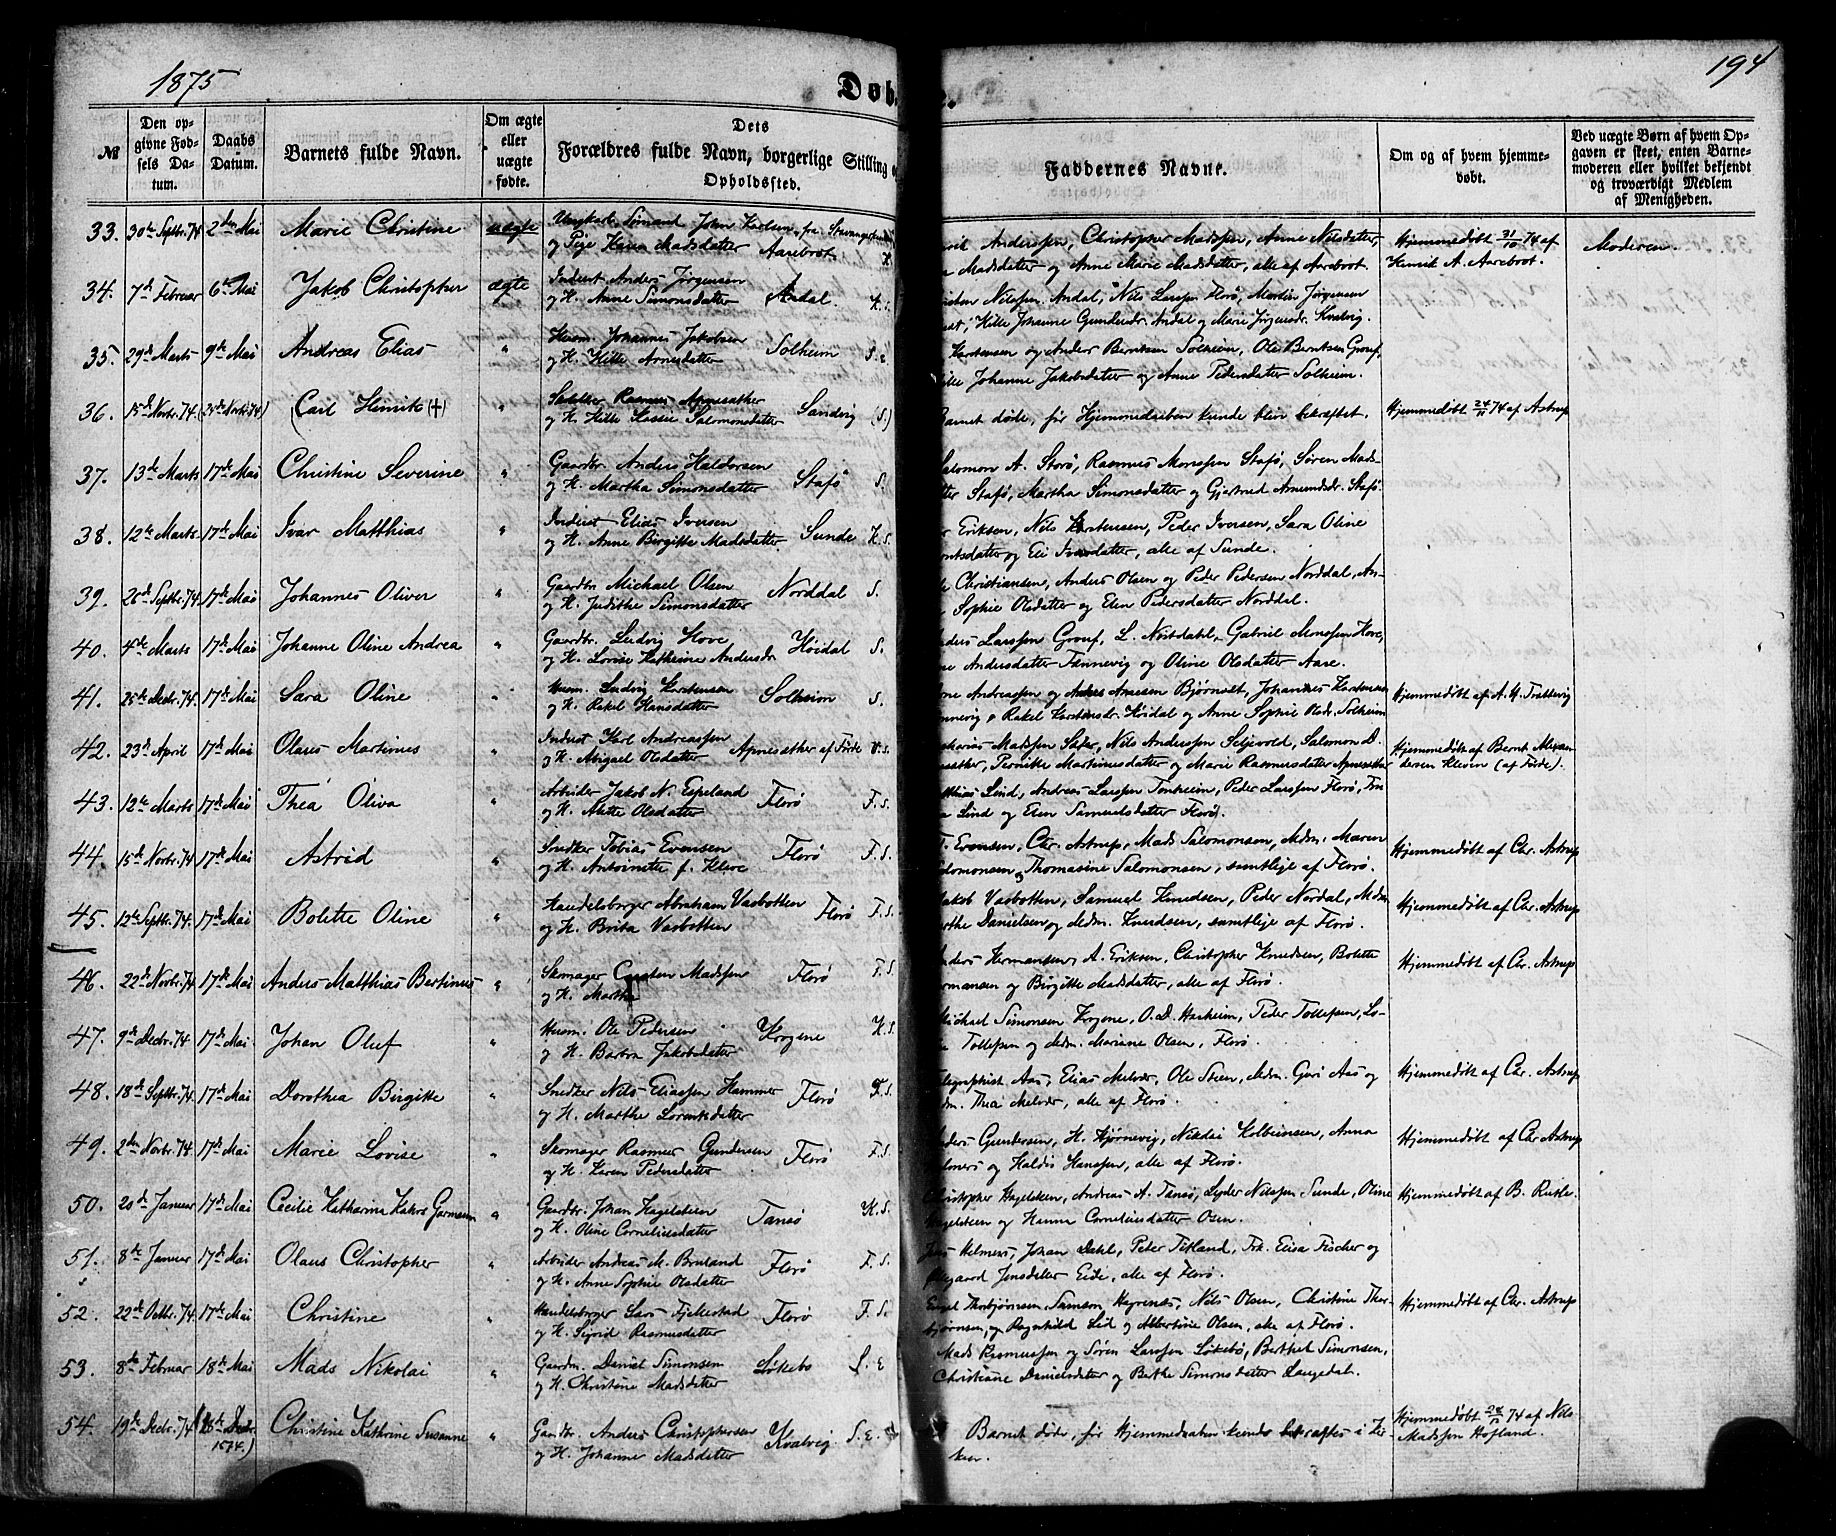 1875
194
Døb
№
Den op-
givne Fød-
sels Da-
tum.
Daabs
Datum.
Barnets fulde Navn.
Om ægte
eller
uægte
fødte.
Dets
Forældres fulde Navn, borgerlige Stilling
Opholdssted.
Faddernes Navne.
Om og af hvem hjemme-
døbt.
Ved uægte Børn af hvem Op-
gaven er skeet, enten Barne-
moderen eller hvilket bekjendt
og troværdigt Medlem
af Menigheden.
33. 30te Septbr. 74 2den Mai Marie Christine uægte Ungkarl Sømand John Karlsen, fra
og Pige Karen Madsdatter Aarebrot K.
Anderssen, Christopher Madssen, Anne Nilsdatter,
Madsdatter og Anne Marie Madsdatter, alle af Aarebrot.
Hjemmedøbt 31/10 74 af
Henrik A. Aarebrot.
Moderen.
34. 7de Februar 6te Mai Jakob Christopher ægte Inderst Anders Jørgensen
og H. Anne Simonsdatter Andal K. s.
Nilssen Andal, Nils Larssen Florø, Martin Jørgensen
Hille Johanne Gundersdr. Andal og Marie Jørgensdr. Kvalvig.
35. 29de Marts 9de Mai Andreas Elias " Husm. Johannes Jakobsen
og H. Hille Arnesdatter Solheim S. E.
Karstensen og Anders Berntsen Solheim, Ole Berntsen Grouf,
Hille Johanne Jakobsdatter og Anne Pedersdatter Solheim.
36. 15de Novbr. 74. (24de Novbr. 74) (Carl Henrik (†) " Rasmus Apnesæther
og H. Hille Salomonsdatter Sandvig (S.)
Barnet døde, før Hjemmedaaben kunde blive bekræftet.
Hjemmedøbt 24/11 74 af Astrup
37. 13de Marts 17de Mai Christine Severine " Gaardbr. Anders Haldorsen
og H. Martha Simonsdatter Stafø S.
Salomon A. Storø, Rasmus Monssen Stafø, Søren Mads-
Stafø, Martha Simonsdatter og Gjertrud Amundsdr. Stafø.
38. 12te Marts 17de Mai Ivar Matthias " Inderst Elias Iversen
og H. Anne Birgitte Madsdatter Sunde K. s.
Eriksen, Nils Karstensen, Peder Iversen, Sara Oline
og Eli Iversdatter, alle af Sunde.
39. 26de Septbr. 74. 17de Mai Johannes Oliver " Gaardbr. Michael Olsen
og H. Judithe Simonsdatter Norddal S.
Christiansen, Anders Olsen og Peder Pedersen Norddal, An-
Sophie Olsdatter og Elen Pedersdatter Norddal.
40. 4de Marts 17de Mai Johanne Oline Andrea " Gaardbr. Ludvig Hove
og H. Lovise Kathrine Andersdr. Høidal S.
Anders Larssen Grouf, L. Nøstdahl, Gabriel Monssen Hove,
Andersdatter Tønnevig og Oline Olsdatter Aare.
41. 25de Decbr. 74. 17de Mai Sara Oline " Husm. Ludvig Karstensen
og H. Rakel Hansdatter Solheim S.
Arne Andreassen og Anders Arnesen Bjørnset, Johannes Karstensen
og Rakel Karstensdr. Høidal og Anne Sophie Olsdr. Solheim
Hjemmedøbt af A. M. Trættevig
42. 23de April 17de Mai Olaus Martinus " Inderst Karl Andreassen
og H. Abigael Olsdatter Apnesæther af Førde V. S.
Madssen Sæter, Nils Anderssen Seljevold, Salomon D.
Pernitte Martinusdatter og Marie Rasmusdatter Apnesæther
Hjemmedøbt af Bernt Alexan-
dersen Kleven (af Førde).
43. 12te Marts 17de Mai Thea Oliva " Arbeider Jakob N. Espeland
og H. Alette Olsdatter Florø F. S.
Lind, Andreas Larssen Tonheim, Peder Larssen Florø, Fru
Lind og Elen Samuelsdatter Florø.
44. 15de Novbr. 74 17de Mai Astrid " Snedker Tobias Evensen
og H. Antoinette f. Kleve Florø F. S.
T. Evensen, Chr. Astrup, Mads Salomonsen, Mdm. Maren
Salomonsen og Thomasine Salomonsen, samtlige af Florø.
Hjemmedøbt af Chr. Astrup
45. 12te Septbr. 74. 17de Mai Bolette Oline " Handelsborger Abraham Vasbotten
og H. Brita Vasbotten Florø F. S.
Jakob Vasbotten, Samuel Knudsen, Peder Nordal, Mdm.
Danielsen og Mdm. Knudsen, samtlige af Florø.
Hjemmedøbt af Chr. Astrup
46. 22de Novbr. 74 17de Mai Anders Matthias Bertinus " Skomager Carsten Madssen
og H. Martha Florø F. S.
Anders Hermansen, A. Eriksen, Christopher Knudsen, Bolette
Hermansen og Birgitte Madsdatter, alle af Florø.
Hjemmedøbt af Chr. Astrup
47. 9de Decbr. 74. 17de Mai Johan Oluf " Husm. Ole Pedersen
og H. Barbra Jakobsdatter Krogene K. S.
Michael Simonsen Krogene, O. D. Husheim, Peder Tollefsen, Lo-
Tollefsen og Mdm. Mariane Olsen, Florø.
48. 18de Septbr. 74. 17de Mai Dorothea Birgitte " Snedker Nils Eliassen Hammer
og H. Marthe Lorentsdatter Florø F. S.
Telegraphist Aas, Elias Melvær, Ole Steen, Mdm. Guri Aas og
Mdm. Thea Melvær, alle af Florø.
Hjemmedøbt af Chr. Astrup
49. 2den Novbr. 74. 17de Mai Marie Lovise " Skomager Rasmus Gundersen
og H. Karen Pedersdatter Florø F. S.
Anders Gundersen, H. Hjørnevig, Nikolai Kolbeinsen, Anna
Helmers og Haldis Hanssen, alle af Florø.
Hjemmedøbt af Chr. Astrup
50. 20de Januar 17de Mai Cecilie Katharina " Gaardbr. Johan Hagelsteen
og H. Oline Corneliusdatter Tansø K. S.
Christopher Hagelsteen, Andreas A. Tansø, Lyder Nilssen Sunde, Oline
Hagelsteen og Hanna Corneliusdatter Osen.
Hjemmedøbt af B. Rutle.
51. 8de Januar 17de Mai Olaus Christopher " Arbeider Andreas M. Bruland
og H. Anne Sophie Olsdatter Florø F. S.
Jens Helmers, Johan Dahl, Peter Tisland, Frk. Elisa Fischer og
Ollegaard Jensdatter Eide, alle af Florø.
52. 22de Octbr. 74. 17de Mai Christine " Handelsborger Lars Fjelkestad
og H. Sigrid Rasmusdatter Florø F. S.
Engel Thorbjørnsen, Samson Høyrenæs, Nils Olsen, Christine Thor-
bjørnsen, og Ragnhild Lid og Albertine Olsen, alle af Florø.
Hjemmedøbt af Chr. Astrup
53. 8de Februar 18de Mai Mads Nikolai " Gaardm. Daniel Simonsen
og H. Christine Madsdatter Løkebø S. E
Mads Rasmussen og Søren Larssen Løkebø, Berthel Simonsen,
Christiane Danielsdatter og Berthe Simonsdatter Langedal.
54. 19de Decbr. 74 (26de Decbr.
1874.) Christine Kathrine Susanne " Gaardbr. Anders Christophersen
og H. Johanne Madsdatter Kvalvig S. E.
Barnet døde, før Hjemmedaaben kunde bekræftes i Kir-
ken.
Hjemmedøbt 26/12 74 af Nils
Madssen Hofland.